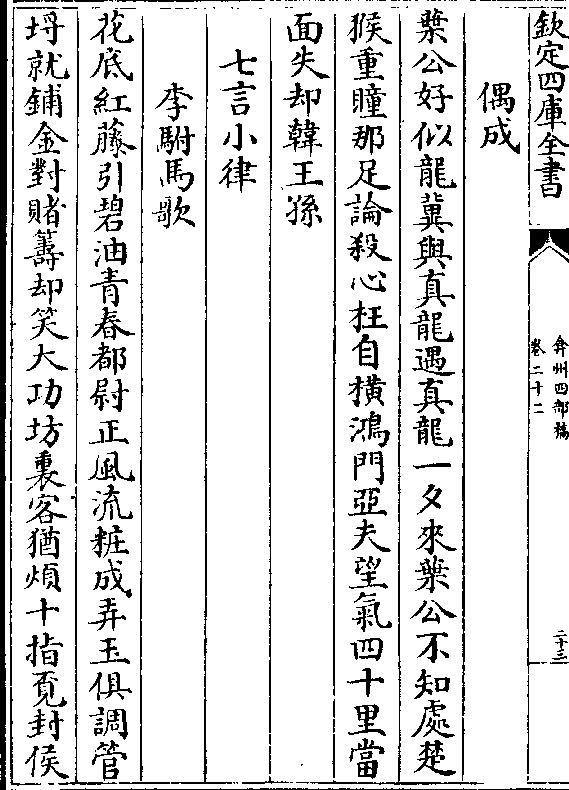 欽定四庫全書
弇州四部稿
卷二十二
二十三
偶成
葉公好似龍兾與真龍遇真龍一夕來葉公不知處楚
猴重瞳那足論殺心枉自横鴻門亞夫望氣四十里當
面失却韓王孫
七言小律
李駙馬歌
花底紅藤引碧油青春都尉正風流粧成弄玉俱調管
埒就鋪金對賭籌却笑大功坊裏客猶煩十指覔封侯